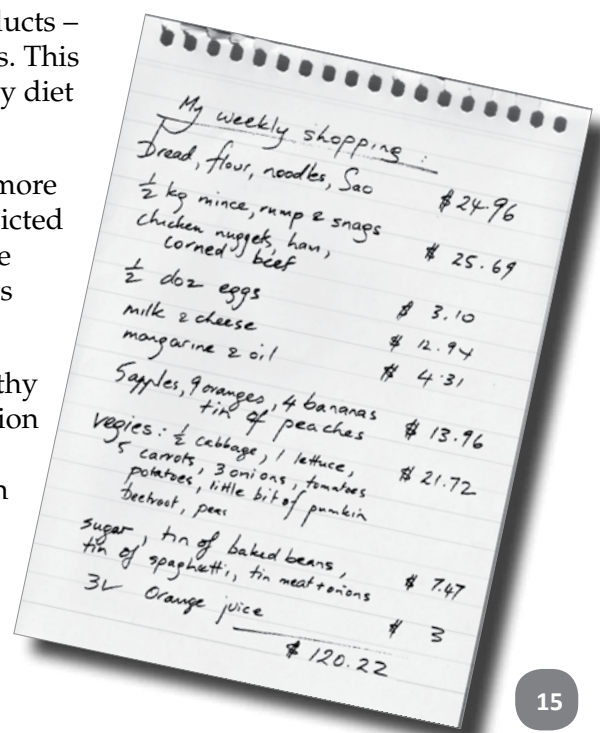 ducts –
s. This
y diet
more
icted
e
s
thy
ion
n
My weekly shopping :
Bread, flour, noodles, Sao $24.96
½ kg mince, rump & snags
chicken nuggets, ham, $ 25.69
corned beef
½ doz eggs $ 3.10
milk & cheese $ 12.94
margarine & oil $ 4.31
5 apples, 9 oranges, 4 bananas
tin of peaches $ 13.96
Vegies: ½ cabbage, 1 lettuce,
5 carrots, 3 onions, tomatoes $ 21.72
potatoes, little bit of pumkin
beetroot, peas
sugar, tin of baked beans,
tin of spaghetti, tin meat + onions $ 7.47
3L Orange juice $ 3
$ 120.22
15